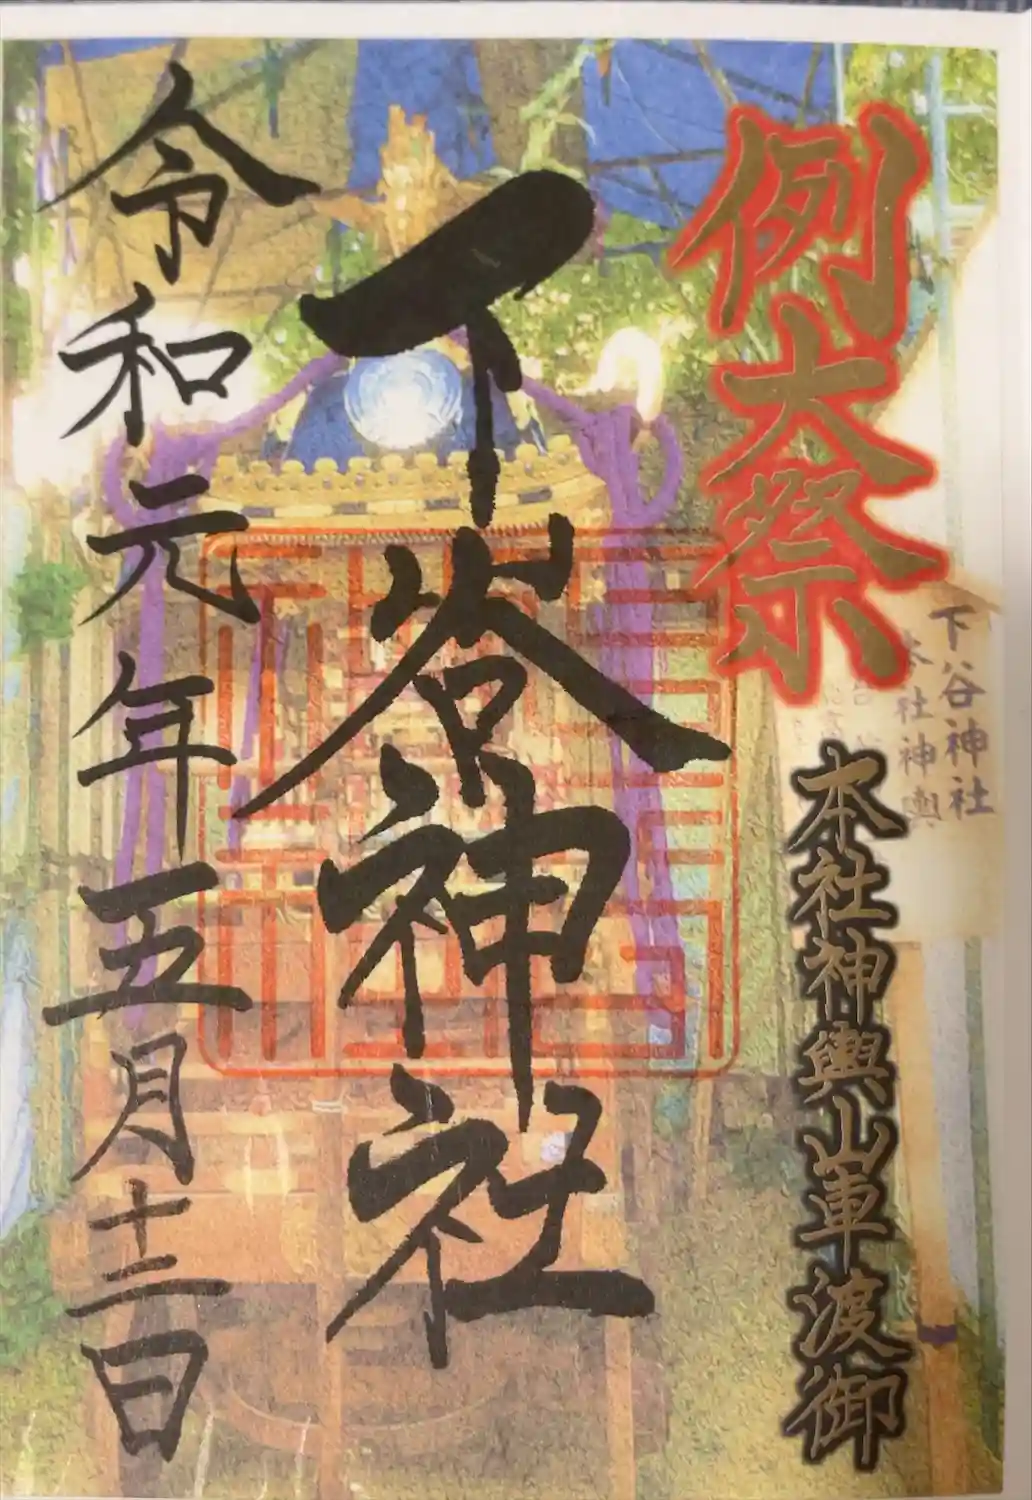 例大祭
本社神輿山車渡御
下谷神社
本社神輿
下谷神社
令和元年五月十二日